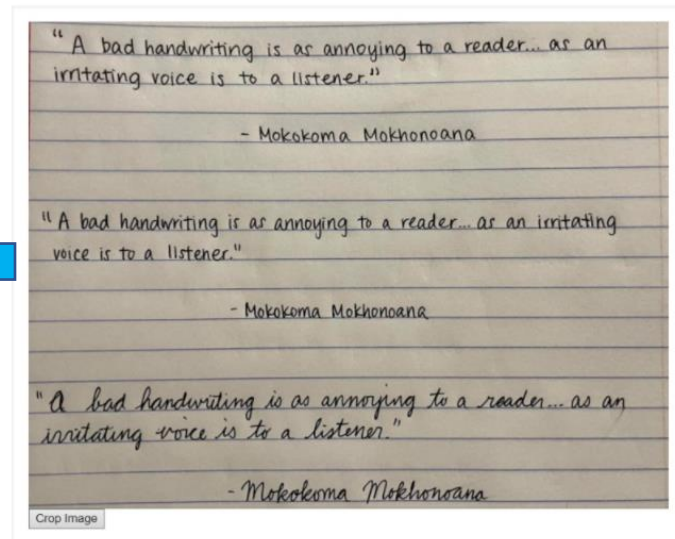 "A bad handwriting is as annoying to a reader... as an
irritating voice is to a listener."
- Mokokoma Mokhonoana
"A bad handwriting is as annoying to a reader... as an irritating
voice is to a listener."
- Mokokoma Mokhonoana
"A bad handwriting is as annoying to a reader... as an
irritating voice is to a listener."
- Mokokoma Mokhonoana
Crop Image